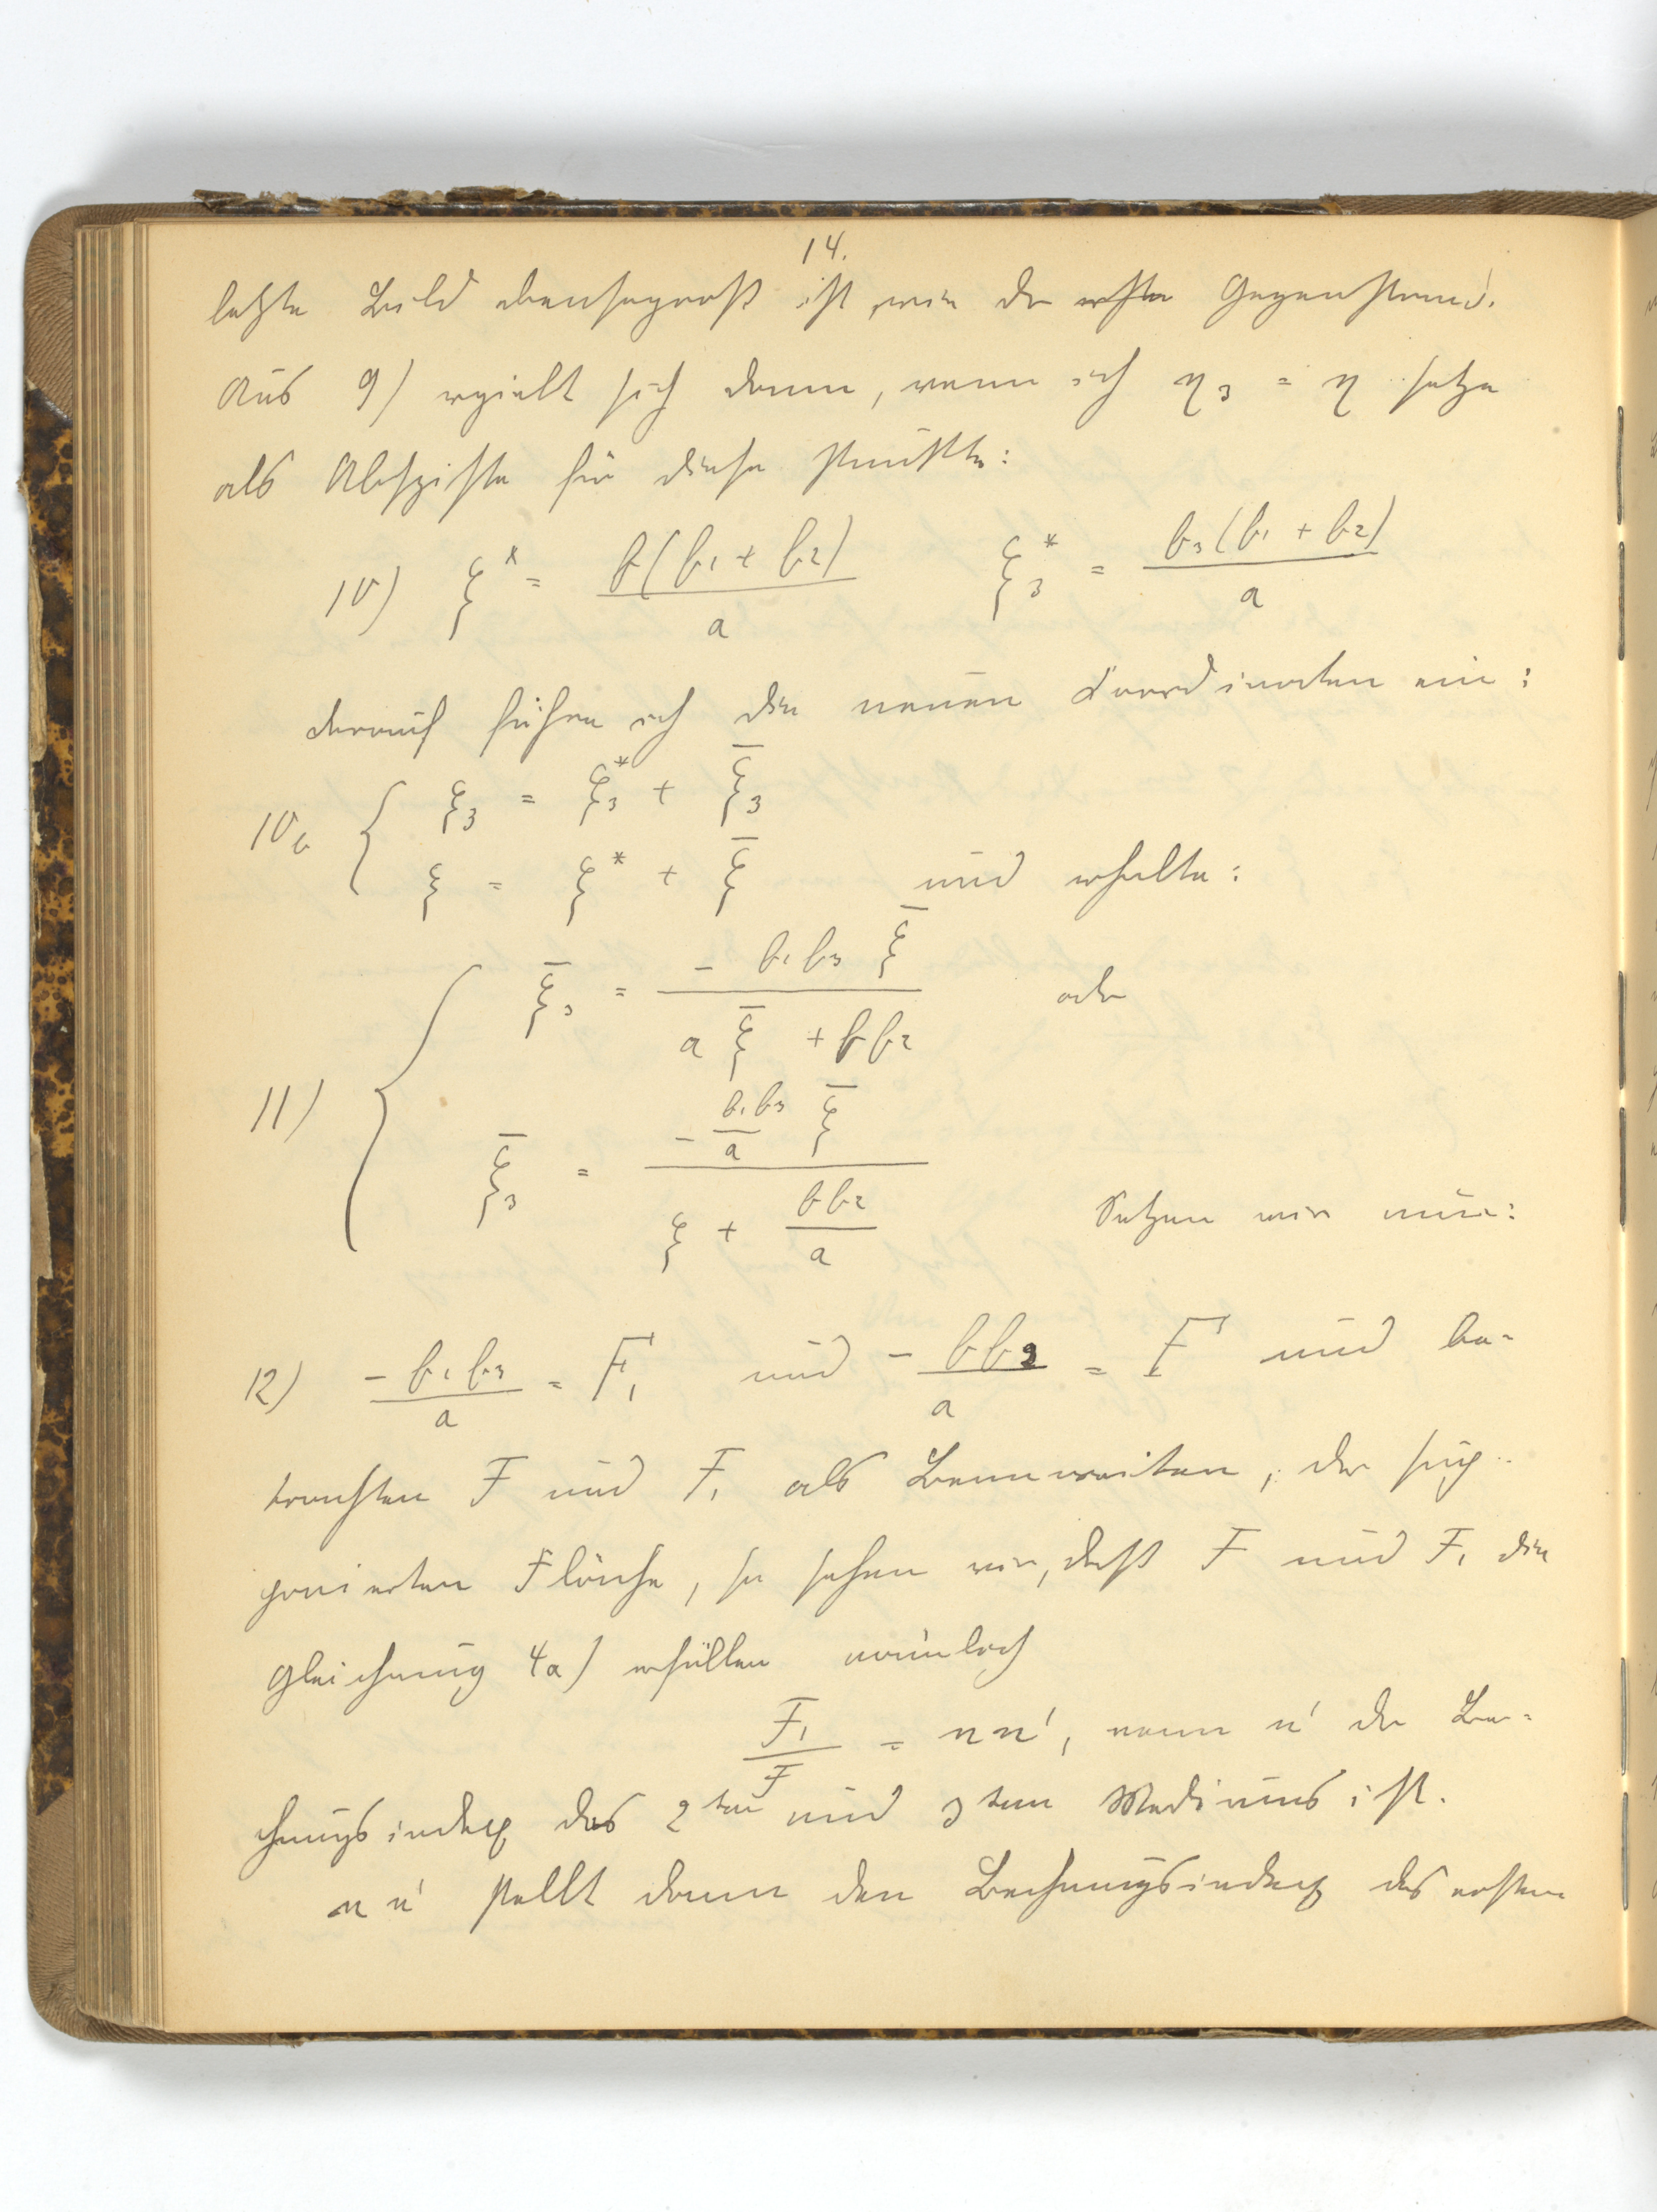 14.
letzte Bild ebensogroß ist, wie der erste Gegenstand.
Aus 9) ergiebt sich dann, wenn ich η₃ = η setze
als Abszisse für diese Punkte:
10) ξ* = b(b₁ + b₂) / a ξ₃* = b₃(b₁ + b₂) / a
darauf führe ich die neuen Koordinaten ein:
10a { ξ₃ = ξ₃* + ξ̄₃
ξ = ξ* + ξ̄ und erhalte:
11) { ξ̄₃ = - b₁b₃ ξ̄ / a ξ̄ + b b₂ oder
ξ̄₃ = - b₁b₃/a ξ̄ / ξ + bb₂/a Setzen wir nun:
12) - b₁b₃ / a = F₁ und - bb₂ / a = F und be-
trachten F und F₁ als Brennweiten, der
Fläche, so sehen wir, daß F und F₁ die
Gleichung 4a) erfüllen nämlich
F₁ / F = nn', wenn n' der Bre-
chungsindex des 2ten und 3ten Mediums ist.
n n' stellt dann den Brechungsindex des ersten